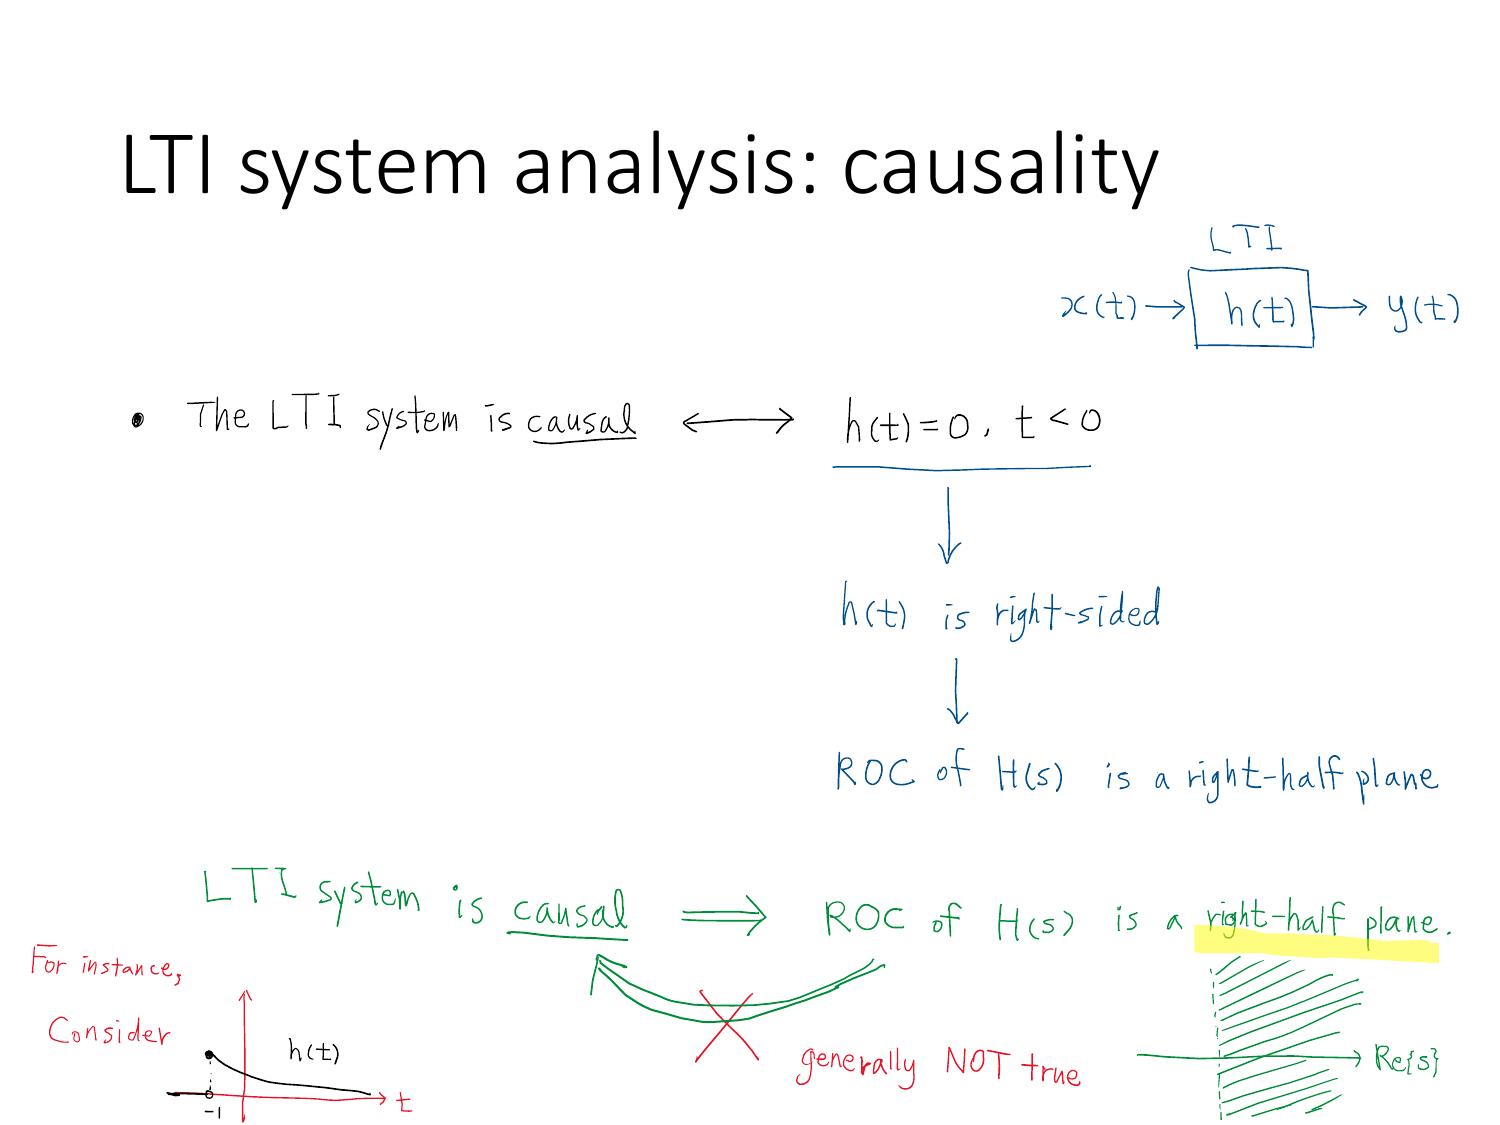 LTI system analysis: causality
LTI
x(t) → h(t) → y(t)
• The LTI system is causal ⟷ h(t) = 0, t < 0
↓
h(t) is right-sided
↓
ROC of H(s) is a right-half plane
LTI system is causal ⟹ ROC of H(s) is a right-half plane.
For instance,
Consider
h(t)
t
-1
generally NOT true
Re{s}